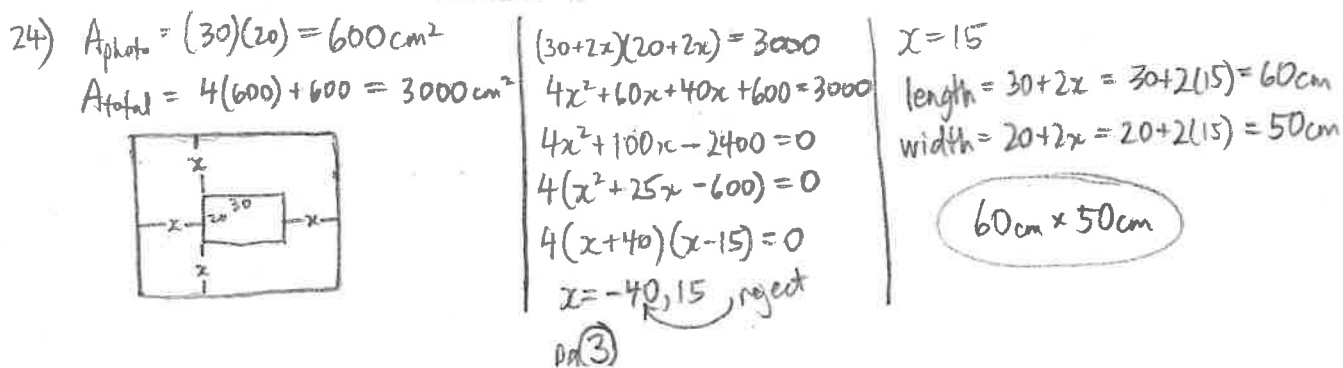 24) A_photo = (30)(20) = 600 cm²
A_total = 4(600) + 600 = 3000 cm²
x
30
x 20 x
x
(30+2x)(20+2x) = 3000
4x²+60x+40x+600=3000
4x²+100x-2400=0
4(x²+25x-600)=0
4(x+40)(x-15)=0
x=-40,15 reject
x=15
length = 30+2x = 30+2(15) = 60cm
width = 20+2x = 20+2(15) = 50cm
60cm × 50cm
pg 3